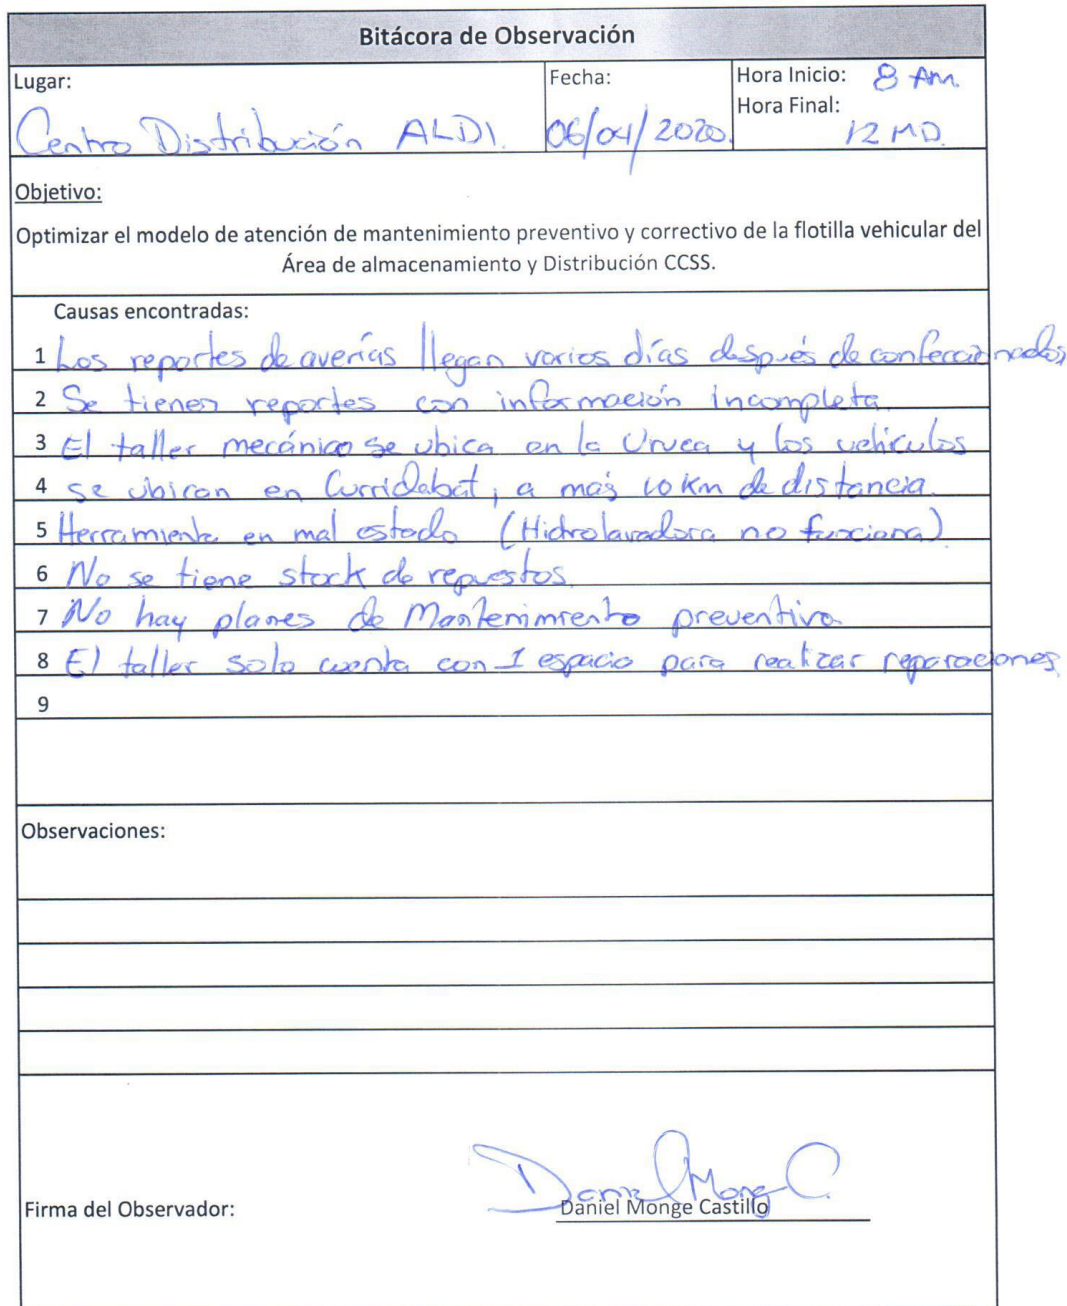 Bitácora de Observación
Lugar:
Centro Distribución ALDI.
Fecha:
06/04/2020.
Hora Inicio: 8 Am.
Hora Final:
12 MD.
Objetivo:
Optimizar el modelo de atención de mantenimiento preventivo y correctivo de la flotilla vehicular del
Área de almacenamiento y Distribución CCSS.
Causas encontradas:
1 Los reportes de averías llegan varios días después de confeccionados
2 Se tienen reportes con información incompleta.
3 El taller mecánico se ubica en la Uruca y los vehículos
4 se ubican en Curridabat, a más 10 Km de distancia.
5 Herramienta en mal estado (Hidrolavadora no funciona)
6 No se tiene stock de repuestos.
7 No hay planes de Mantenimiento preventivo
8 El taller solo cuenta con 1 espacio para realizar reparaciones.
9
Observaciones:
Daniel Monge C.
Firma del Observador:
Daniel Monge Castillo